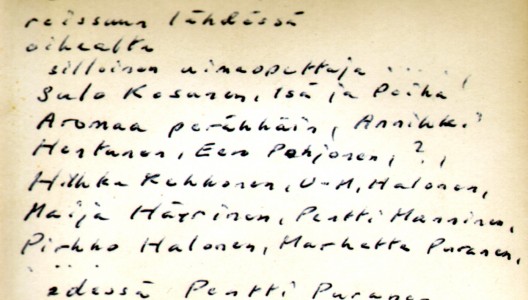 reissuun lähdössä
oikealta
silloinen uimaopettaja ....,
Sulo Kosunen, Isä ja Poika
Aromaa peräkkäin, Annikki?
Hertunen, Eero Pohjonen, ?,
Hilkka Kekkonen, U-M. Halonen,
Maija Häyrinen, Pentti Manninen,
Pirkko Halonen, Marketta Puranen,
....
edessä Pentti Puranen